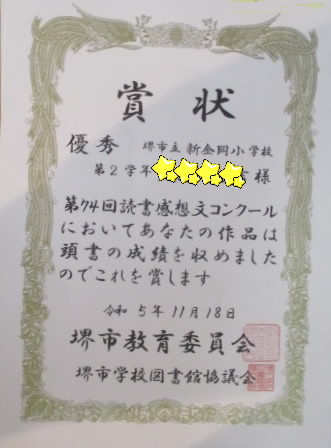 賞状
優秀 堺市立新金岡小学校
第2学年 様
第74回読書感想文コンクール
においてあなたの作品は
頭書の成績を収めました
のでこれを賞します
令和5年11月18日
堺市教育委員会
堺市学校図書館協議会